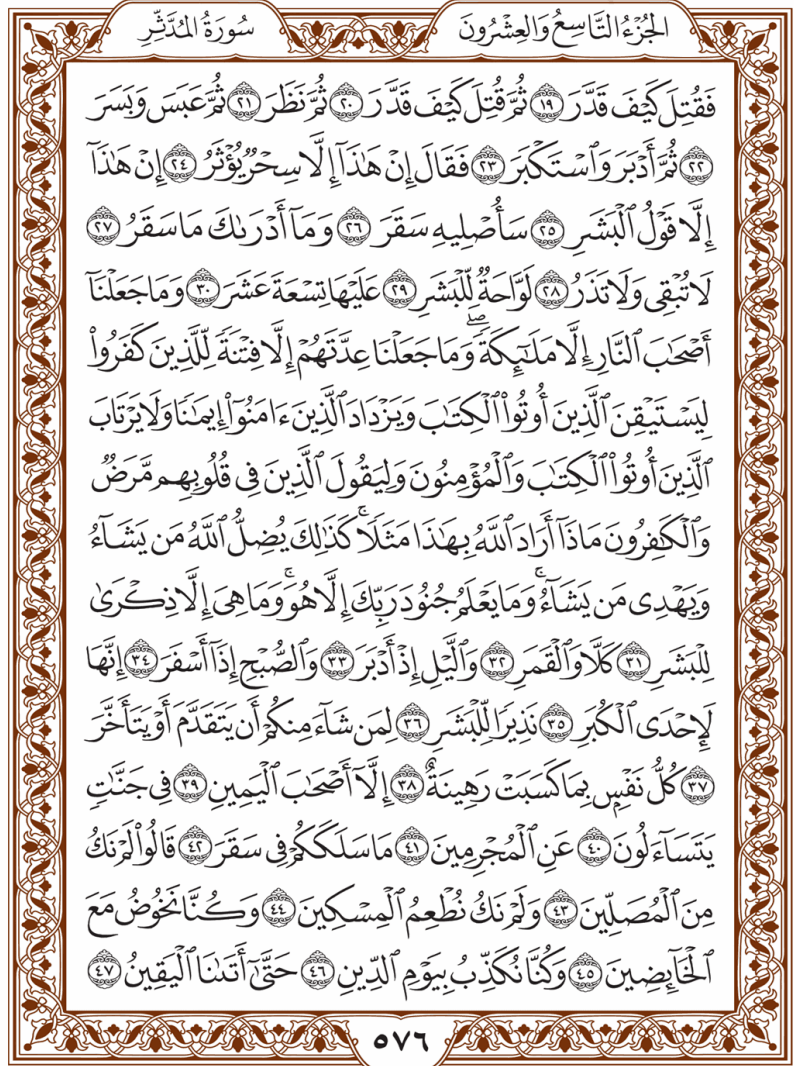 الجُزْءُ التَّاسِعُ وَالعِشْرُونَ سُورَةُ المُدَّثِّرِ
فَقُتِلَ كَيْفَ قَدَّرَ ١٩ ثُمَّ قُتِلَ كَيْفَ قَدَّرَ ٢٠ ثُمَّ نَظَرَ ٢١ ثُمَّ عَبَسَ وَبَسَرَ
٢٢ ثُمَّ أَدْبَرَ وَٱسْتَكْبَرَ ٢٣ فَقَالَ إِنْ هَٰذَآ إِلَّا سِحْرٌ يُؤْثَرُ ٢٤ إِنْ هَٰذَآ
إِلَّا قَوْلُ ٱلْبَشَرِ ٢٥ سَأُصْلِيهِ سَقَرَ ٢٦ وَمَآ أَدْرَىٰكَ مَا سَقَرُ ٢٧
لَا تُبْقِى وَلَا تَذَرُ ٢٨ لَوَّاحَةٌ لِّلْبَشَرِ ٢٩ عَلَيْهَا تِسْعَةَ عَشَرَ ٣٠ وَمَا جَعَلْنَآ
أَصْحَٰبَ ٱلنَّارِ إِلَّا مَلَٰٓئِكَةً ۖ وَمَا جَعَلْنَا عِدَّتَهُمْ إِلَّا فِتْنَةً لِّلَّذِينَ كَفَرُوا۟
لِيَسْتَيْقِنَ ٱلَّذِينَ أُوتُوا۟ ٱلْكِتَٰبَ وَيَزْدَادَ ٱلَّذِينَ ءَامَنُوٓا۟ إِيمَٰنًا وَلَا يَرْتَابَ
ٱلَّذِينَ أُوتُوا۟ ٱلْكِتَٰبَ وَٱلْمُؤْمِنُونَ وَلِيَقُولَ ٱلَّذِينَ فِى قُلُوبِهِم مَّرَضٌ
وَٱلْكَٰفِرُونَ مَاذَآ أَرَادَ ٱللَّهُ بِهَٰذَا مَثَلًا ۚ كَذَٰلِكَ يُضِلُّ ٱللَّهُ مَن يَشَآءُ
وَيَهْدِى مَن يَشَآءُ ۚ وَمَا يَعْلَمُ جُنُودَ رَبِّكَ إِلَّا هُوَ ۚ وَمَا هِىَ إِلَّا ذِكْرَىٰ
لِلْبَشَرِ ٣١ كَلَّا وَٱلْقَمَرِ ٣٢ وَٱلَّيْلِ إِذْ أَدْبَرَ ٣٣ وَٱلصُّبْحِ إِذَآ أَسْفَرَ ٣٤ إِنَّهَا
لَإِحْدَى ٱلْكُبَرِ ٣٥ نَذِيرًا لِّلْبَشَرِ ٣٦ لِمَن شَآءَ مِنكُمْ أَن يَتَقَدَّمَ أَوْ يَتَأَخَّرَ
٣٧ كُلُّ نَفْسٍۭ بِمَا كَسَبَتْ رَهِينَةٌ ٣٨ إِلَّآ أَصْحَٰبَ ٱلْيَمِينِ ٣٩ فِى جَنَّٰتٍ
يَتَسَآءَلُونَ ٤٠ عَنِ ٱلْمُجْرِمِينَ ٤١ مَا سَلَكَكُمْ فِى سَقَرَ ٤٢ قَالُوا۟ لَمْ نَكُ
مِنَ ٱلْمُصَلِّينَ ٤٣ وَلَمْ نَكُ نُطْعِمُ ٱلْمِسْكِينَ ٤٤ وَكُنَّا نَخُوضُ مَعَ
ٱلْخَآئِضِينَ ٤٥ وَكُنَّا نُكَذِّبُ بِيَوْمِ ٱلدِّينِ ٤٦ حَتَّىٰٓ أَتَىٰنَا ٱلْيَقِينُ ٤٧
٥٧٦